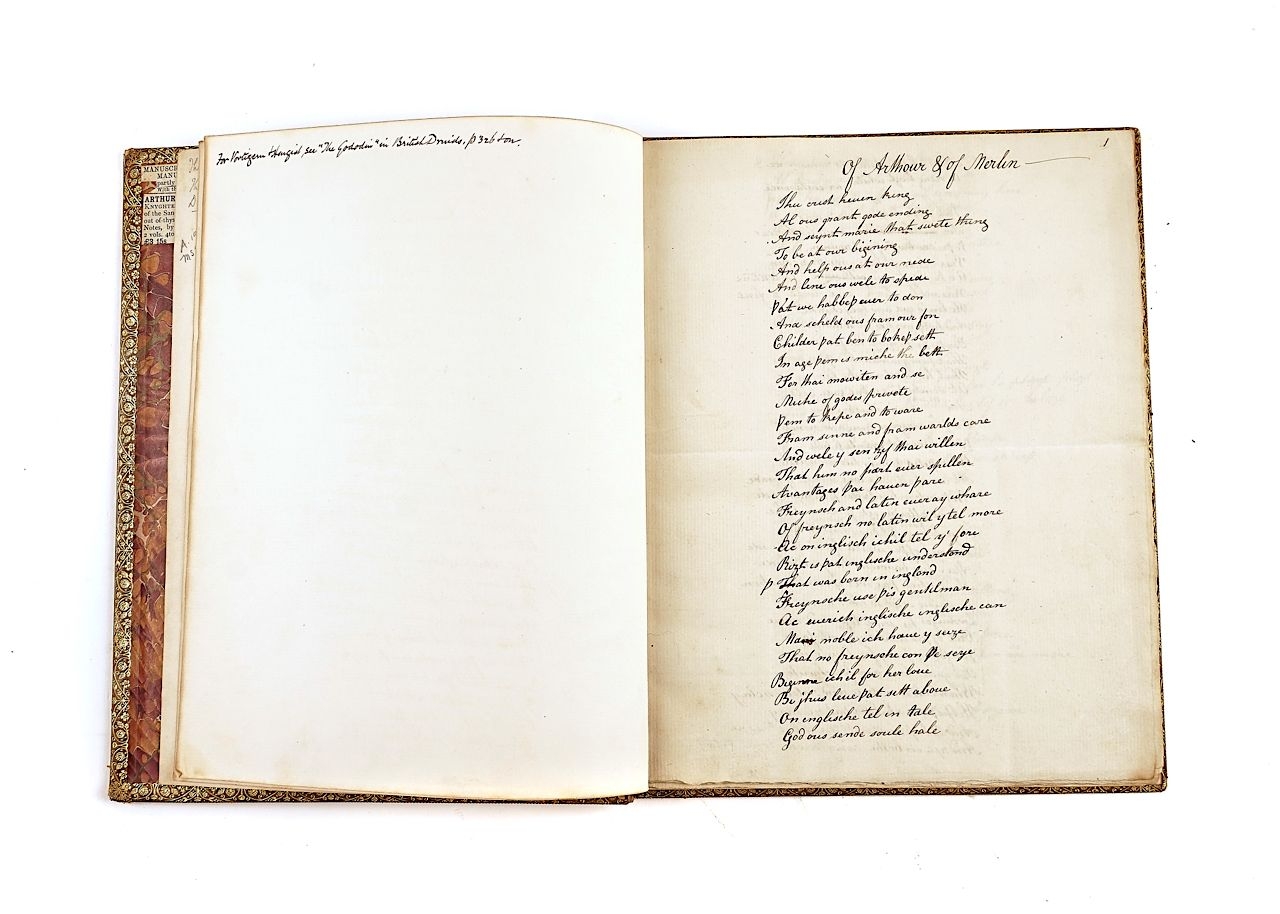 MANUSCR
MANU
partly
With th
ARTHUR
KNYGHTE
of the San
out of thys
Notes, by
2 vols. 4to
£3 15s
For Vortigern & Hengist, see "The Gododin" in British Druids, p 326 &on.
1
Of Arthour & of Merlin
Ihu crist heuen king
Al ous grant gode ending
And seynt marie that swete thing
To be at our bigining
And help ous at our nede
And lene ous wele to spede
Þat we habbeþ euer to don
And scheld ous fram our fon
Childer þat ben to boke sett
In age þem is miche the bett
For thai mow iten and se
Miche of godes privete
Þem to kepe and to ware
Fram sinne and fram warlds care
And wele y sen ȝif thai willen
That hem no þart euer spillen
Avantages þai hauen þare
Freynsch and latin eueray whare
Of freynsch no latin wil y tel more
Ac on inglisch ichil tel y fore
Riȝt is þat inglische understond
þ That was born in inglond
Freynsche use þis gentilman
Ac euerich inglische inglische can
Mani noble ich haue y seȝe
That no freynsche con þe seye
Biginne ichil for her loue
Bi jhus leue þat sett aboue
On inglische tel in tale
God ous sende soule hale